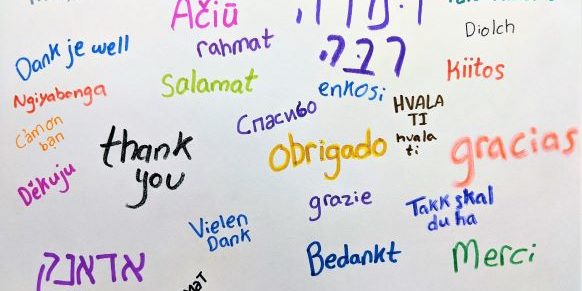 Ačiū
תודה
רבה
Diolch
Dank je well
rahmat
Kiitos
Salamat
enkosi
Ngiyabonga
HVALA
TI
hvala
ti
Спасибо
Cảm ơn
bạn
thank
you
obrigado
gracias
Děkuju
grazie
Takk skal
du ha
Vielen
Dank
Bedankt
Merci
אדאנק